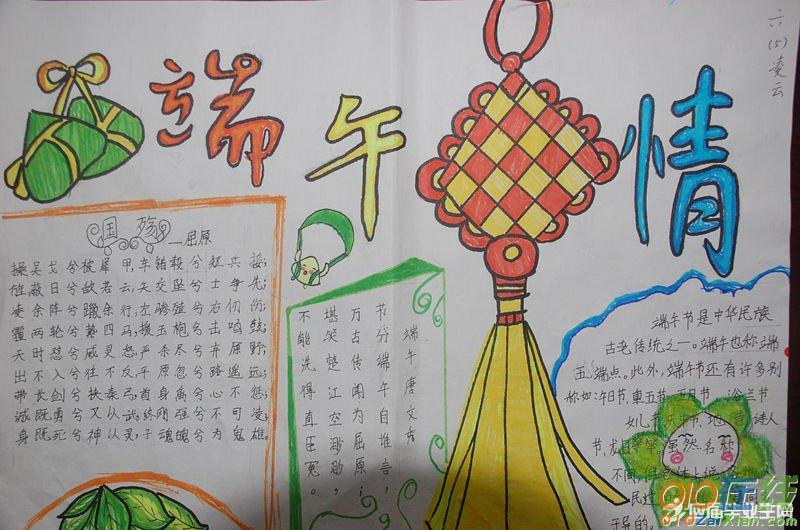 端午情
六(5)凌云
国殇
——屈原
操吴戈兮被犀甲,车错毂兮短兵接;
旌蔽日兮敌若云,矢交坠兮士争先;
凌余阵兮躐余行,左骖殪兮右刃伤;
霾两轮兮絷四马,援玉枹兮击鸣鼓;
天时怼兮威灵怒,严杀尽兮弃原野;
出不入兮往不反,平原忽兮路遥远;
带长剑兮挟秦弓,首身离兮心不惩;
诚既勇兮又从武,终刚强兮不可凌;
身既死兮神以灵,子魂魄兮为鬼雄。
端午 唐 文秀
节分端午自谁言,
万古传闻为屈原;
堪笑楚江空渺渺,
不能洗得直臣冤。
端午节是中华民族
古老传统之一。端午也称端
五,端点。此外,端午节还有许多别
称如:午日节、重五节、浴兰节
女儿节、地、诗人
节,虽然名称
不同,但总体上
910在线
910zaixian.com